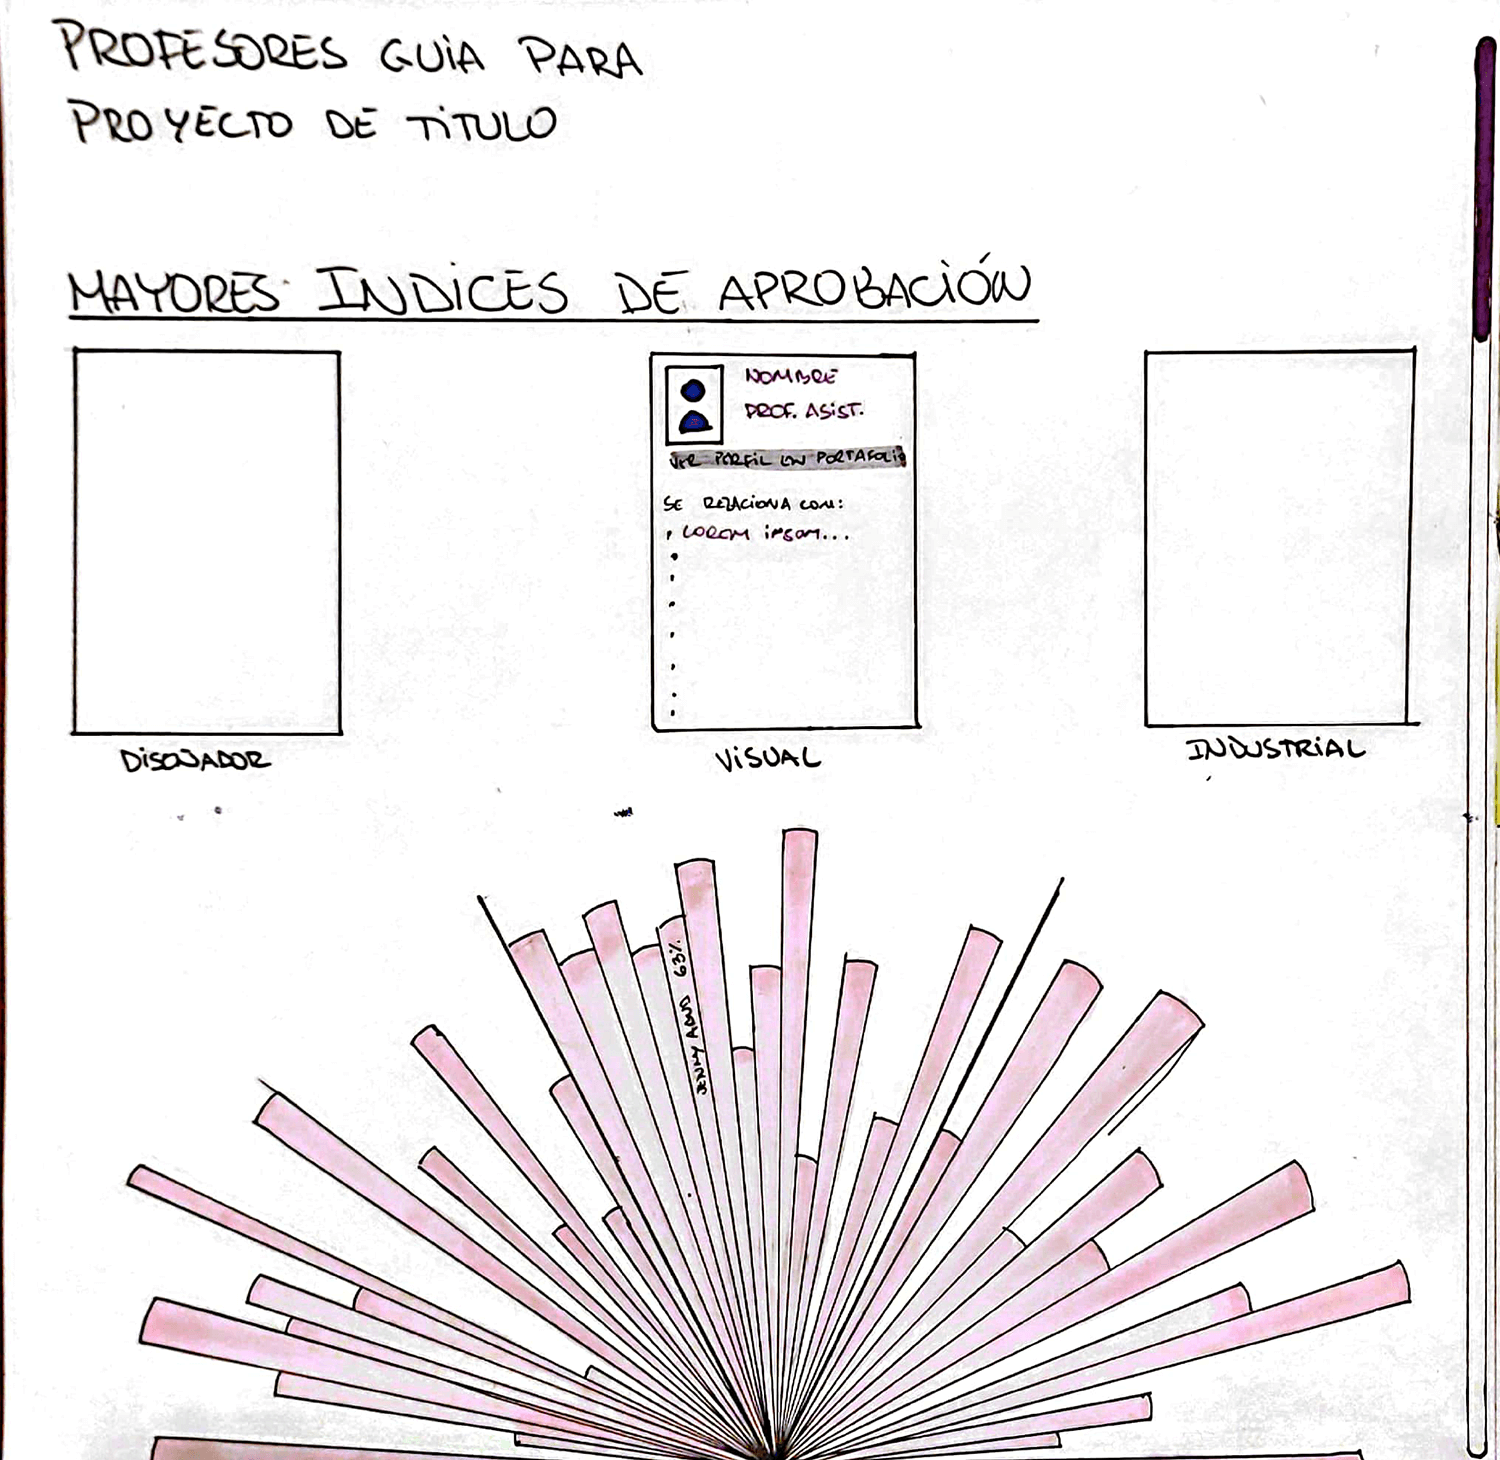 PROFESORES GUiA PARA
PROYECTO DE TiTULO
MAYORES INDiCES DE APROBACiÓN
NOMBRE
PROF. ASiST.
VER PERFiL EN PORTAFOLiO
SE RELACiONA CON:
LOREM iPSOM...
DiSEÑADOR
ViSUAL
INDUSTRiAL
JENNY ABUD 63%